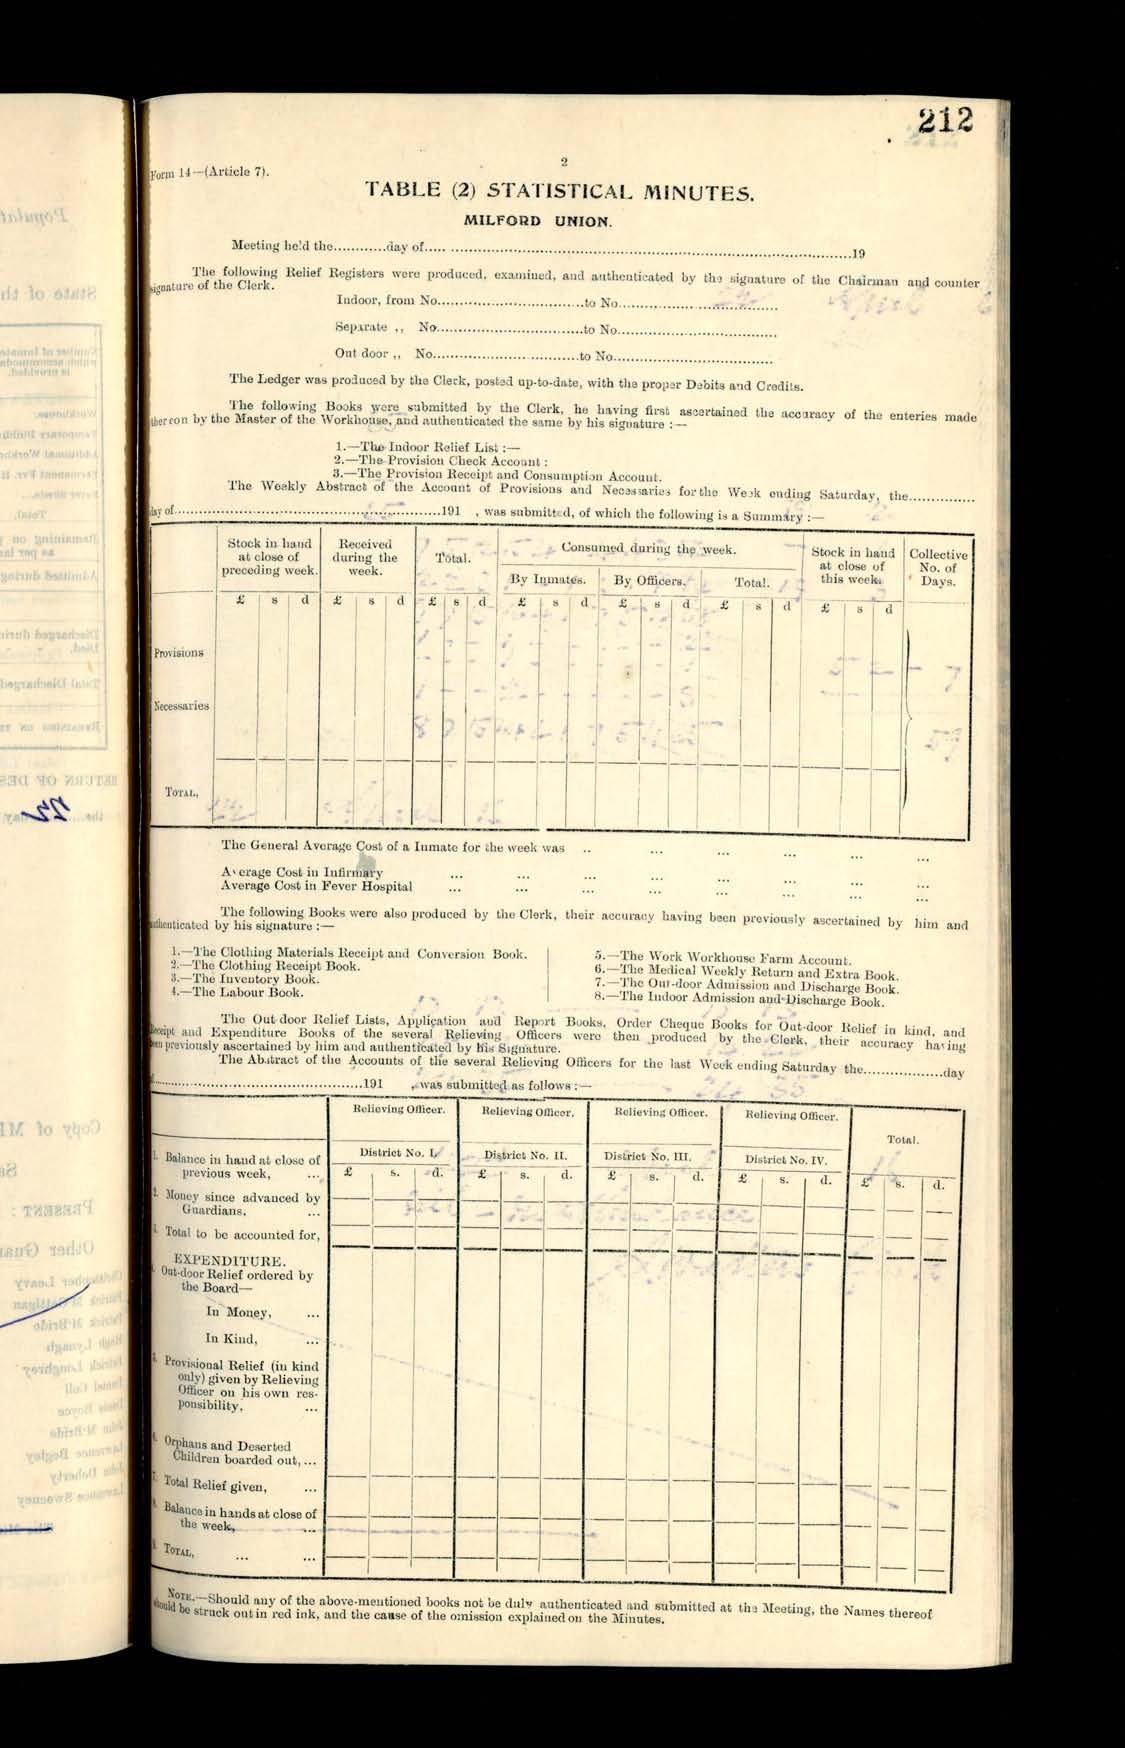 212
Form 14—(Article 7).
2
TABLE (2) STATISTICAL MINUTES.
MILFORD UNION.
Meeting held the............day of..........................................................................................19
The following Relief Registers were produced, examined, and authenticated by the signature of the Chairman and counter
signature of the Clerk.
Indoor, from No.................................to No.................................
Separate ,, No.................................to No.................................
Out door ,, No.................................to No.................................
The Ledger was produced by the Clerk, posted up-to-date, with the proper Debits and Credits.
The following Books were submitted by the Clerk, he having first ascertained the accuracy of the enteries made
thereon by the Master of the Workhouse, and authenticated the same by his signature :—
1.—The Indoor Relief List :—
2.—The Provision Check Account :
3.—The Provision Receipt and Consumption Account.
The Weekly Abstract of the Account of Provisions and Necessaries for the Week ending Saturday, the...............
day of............................................................191 , was submitted, of which the following is a Summary :—
Stock in hand at close of preceding week. Received during the week. Total. Consumed during the week. Stock in hand at close of this week. Collective No. of Days.
By Inmates. By Officers. Total.
£ s d £ s d £ s d £ s d £ s d £ s d £ s d
Provisions
Necessaries
TOTAL,
The General Average Cost of a Inmate for the week was .. ... ... ... ... ...
Average Cost in Infirmary ... ... ... ... ... ... ... ...
Average Cost in Fever Hospital ... ... ... ... ... ... ... ...
The following Books were also produced by the Clerk, their accuracy having been previously ascertained by him and
authenticated by his signature :—
1.—The Clothing Materials Receipt and Conversion Book.
2.—The Clothing Receipt Book.
3.—The Inventory Book.
4.—The Labour Book.
5.—The Work Workhouse Farm Account.
6.—The Medical Weekly Return and Extra Book.
7.—The Out-door Admission and Discharge Book.
8.—The Indoor Admission and Discharge Book.
The Out door Relief Lists, Application and Report Books, Order Cheque Books for Out-door Relief in kind, and
Receipt and Expenditure Books of the several Relieving Officers were then produced by the Clerk, their accuracy having
been previously ascertained by him and authenticated by his Signature.
The Abstract of the Accounts of the several Relieving Officers for the last Week ending Saturday the.................day
..............................................191 , was submitted as follows :—
Relieving Officer. Relieving Officer. Relieving Officer. Relieving Officer. Total.
District No. I. District No. II. District No. III. District No. IV.
£ s. d. £ s. d. £ s. d. £ s. d. £ s. d.
1. Balance in hand at close of
previous week, ...
2. Money since advanced by
Guardians, ...
3. Total to be accounted for,
EXPENDITURE.
Out-door Relief ordered by
the Board—
In Money, ...
In Kind, ...
5. Provisional Relief (in kind
only) given by Relieving
Officer on his own res-
ponsibility, ...
6. Orphans and Deserted
Children boarded out, ...
7. Total Relief given, ...
8. Balance in hands at close of
the week, ...
9. TOTAL, ... ...
NOTE.—Should any of the above-mentioned books not be duly authenticated and submitted at the Meeting, the Names thereof
should be struck out in red ink, and the cause of the omission explained on the Minutes.